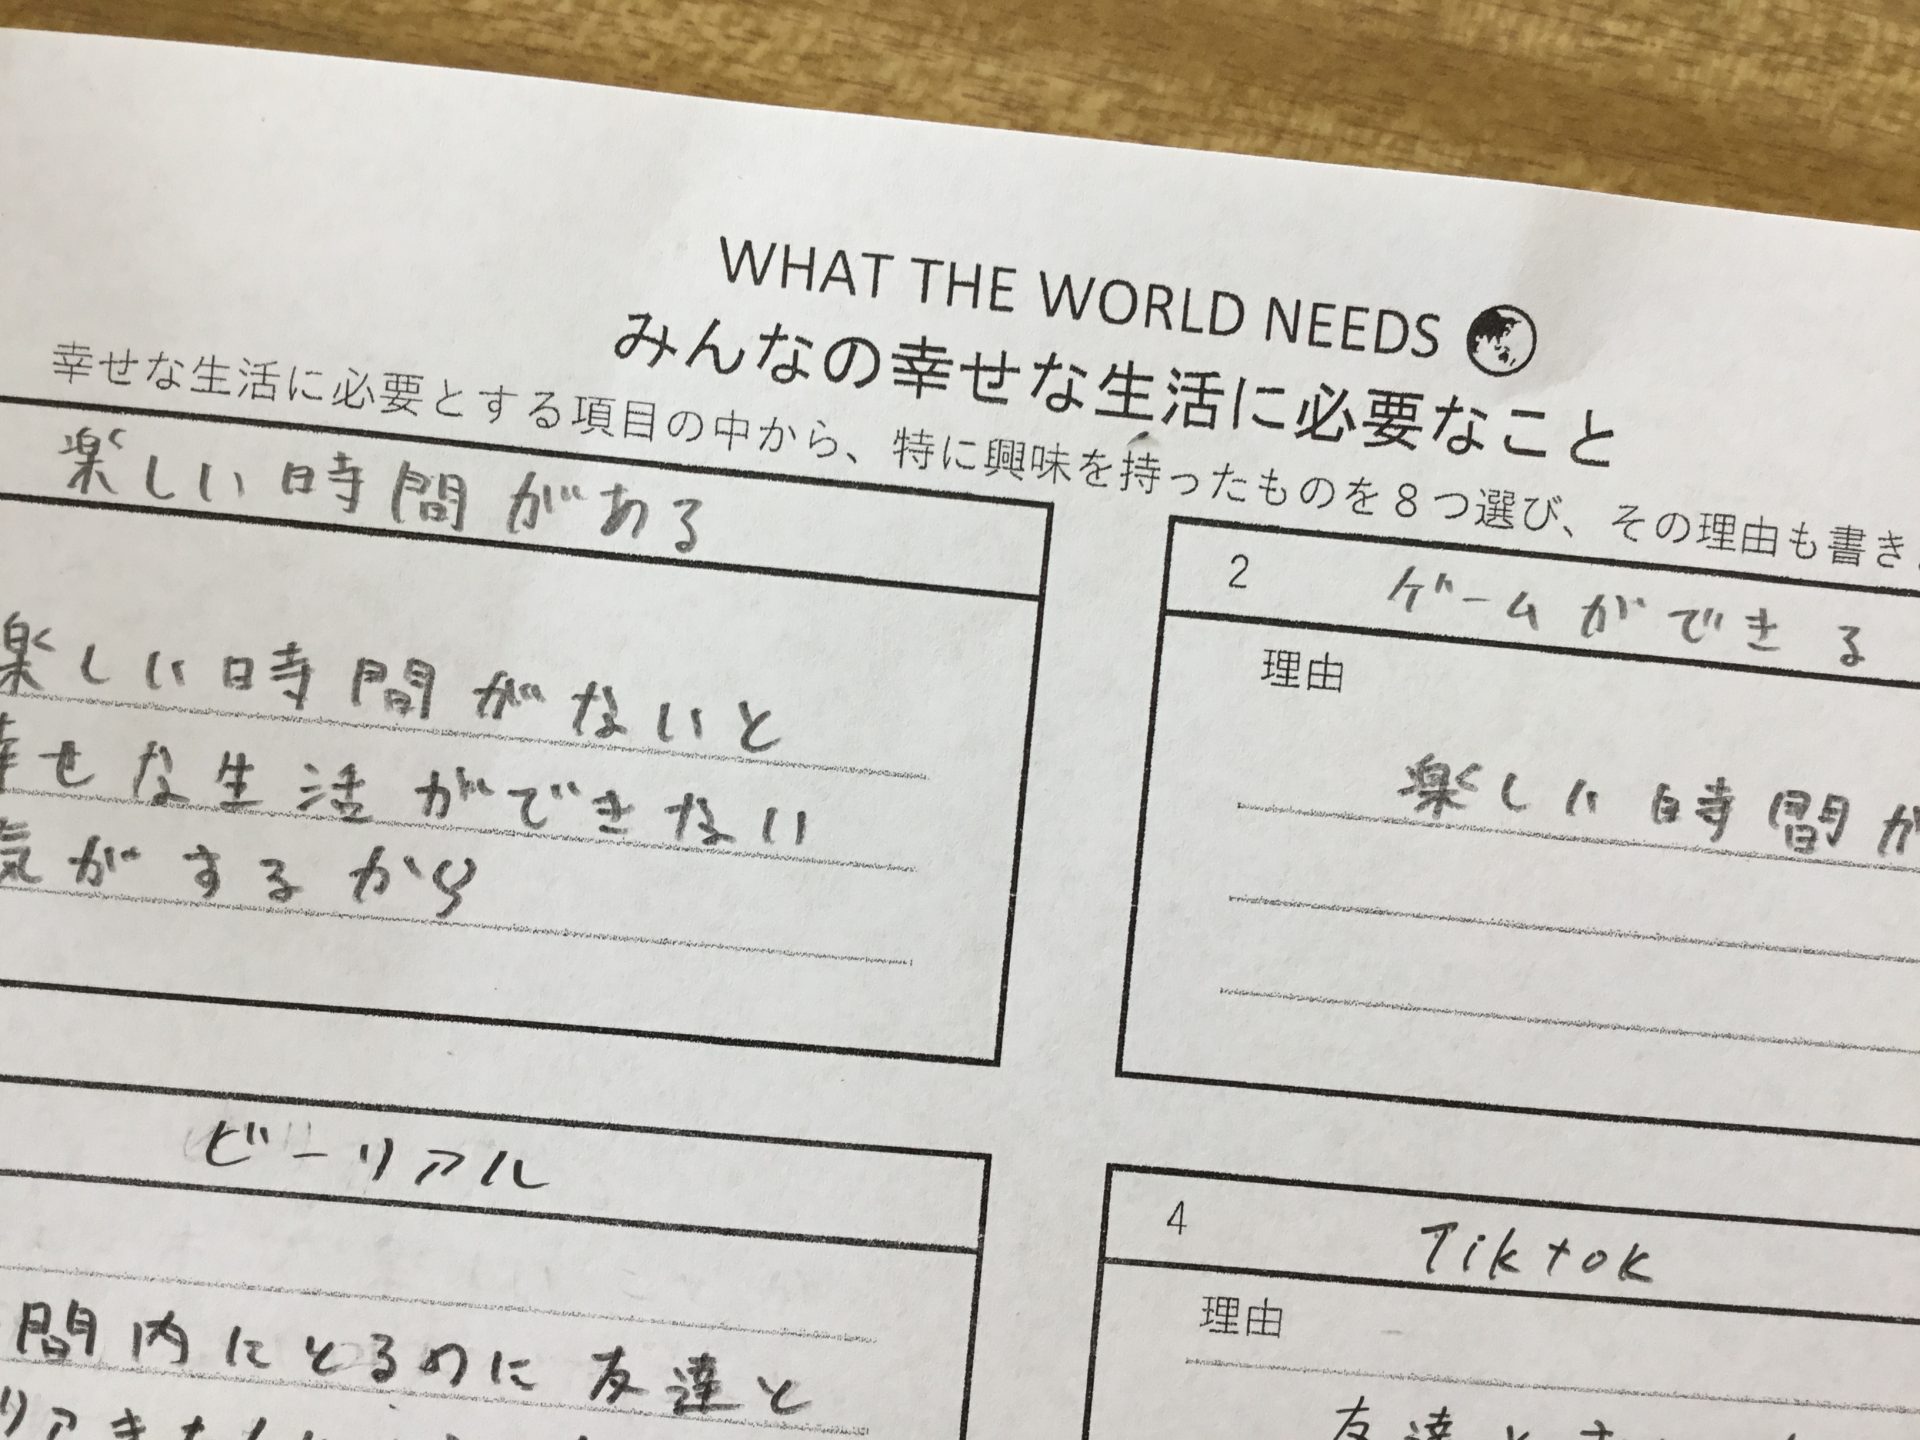 WHAT THE WORLD NEEDS
みんなの幸せな生活に必要なこと
幸せな生活に必要とする項目の中から、特に興味を持ったものを8つ選び、その理由も書き
楽しい時間がある
楽しい時間がないと
幸せな生活ができない
気がするから
2 ゲームができる
理由
楽しい時間が
ビーリアル
間内にとるのに友達と
4 Tiktok
理由
友達と